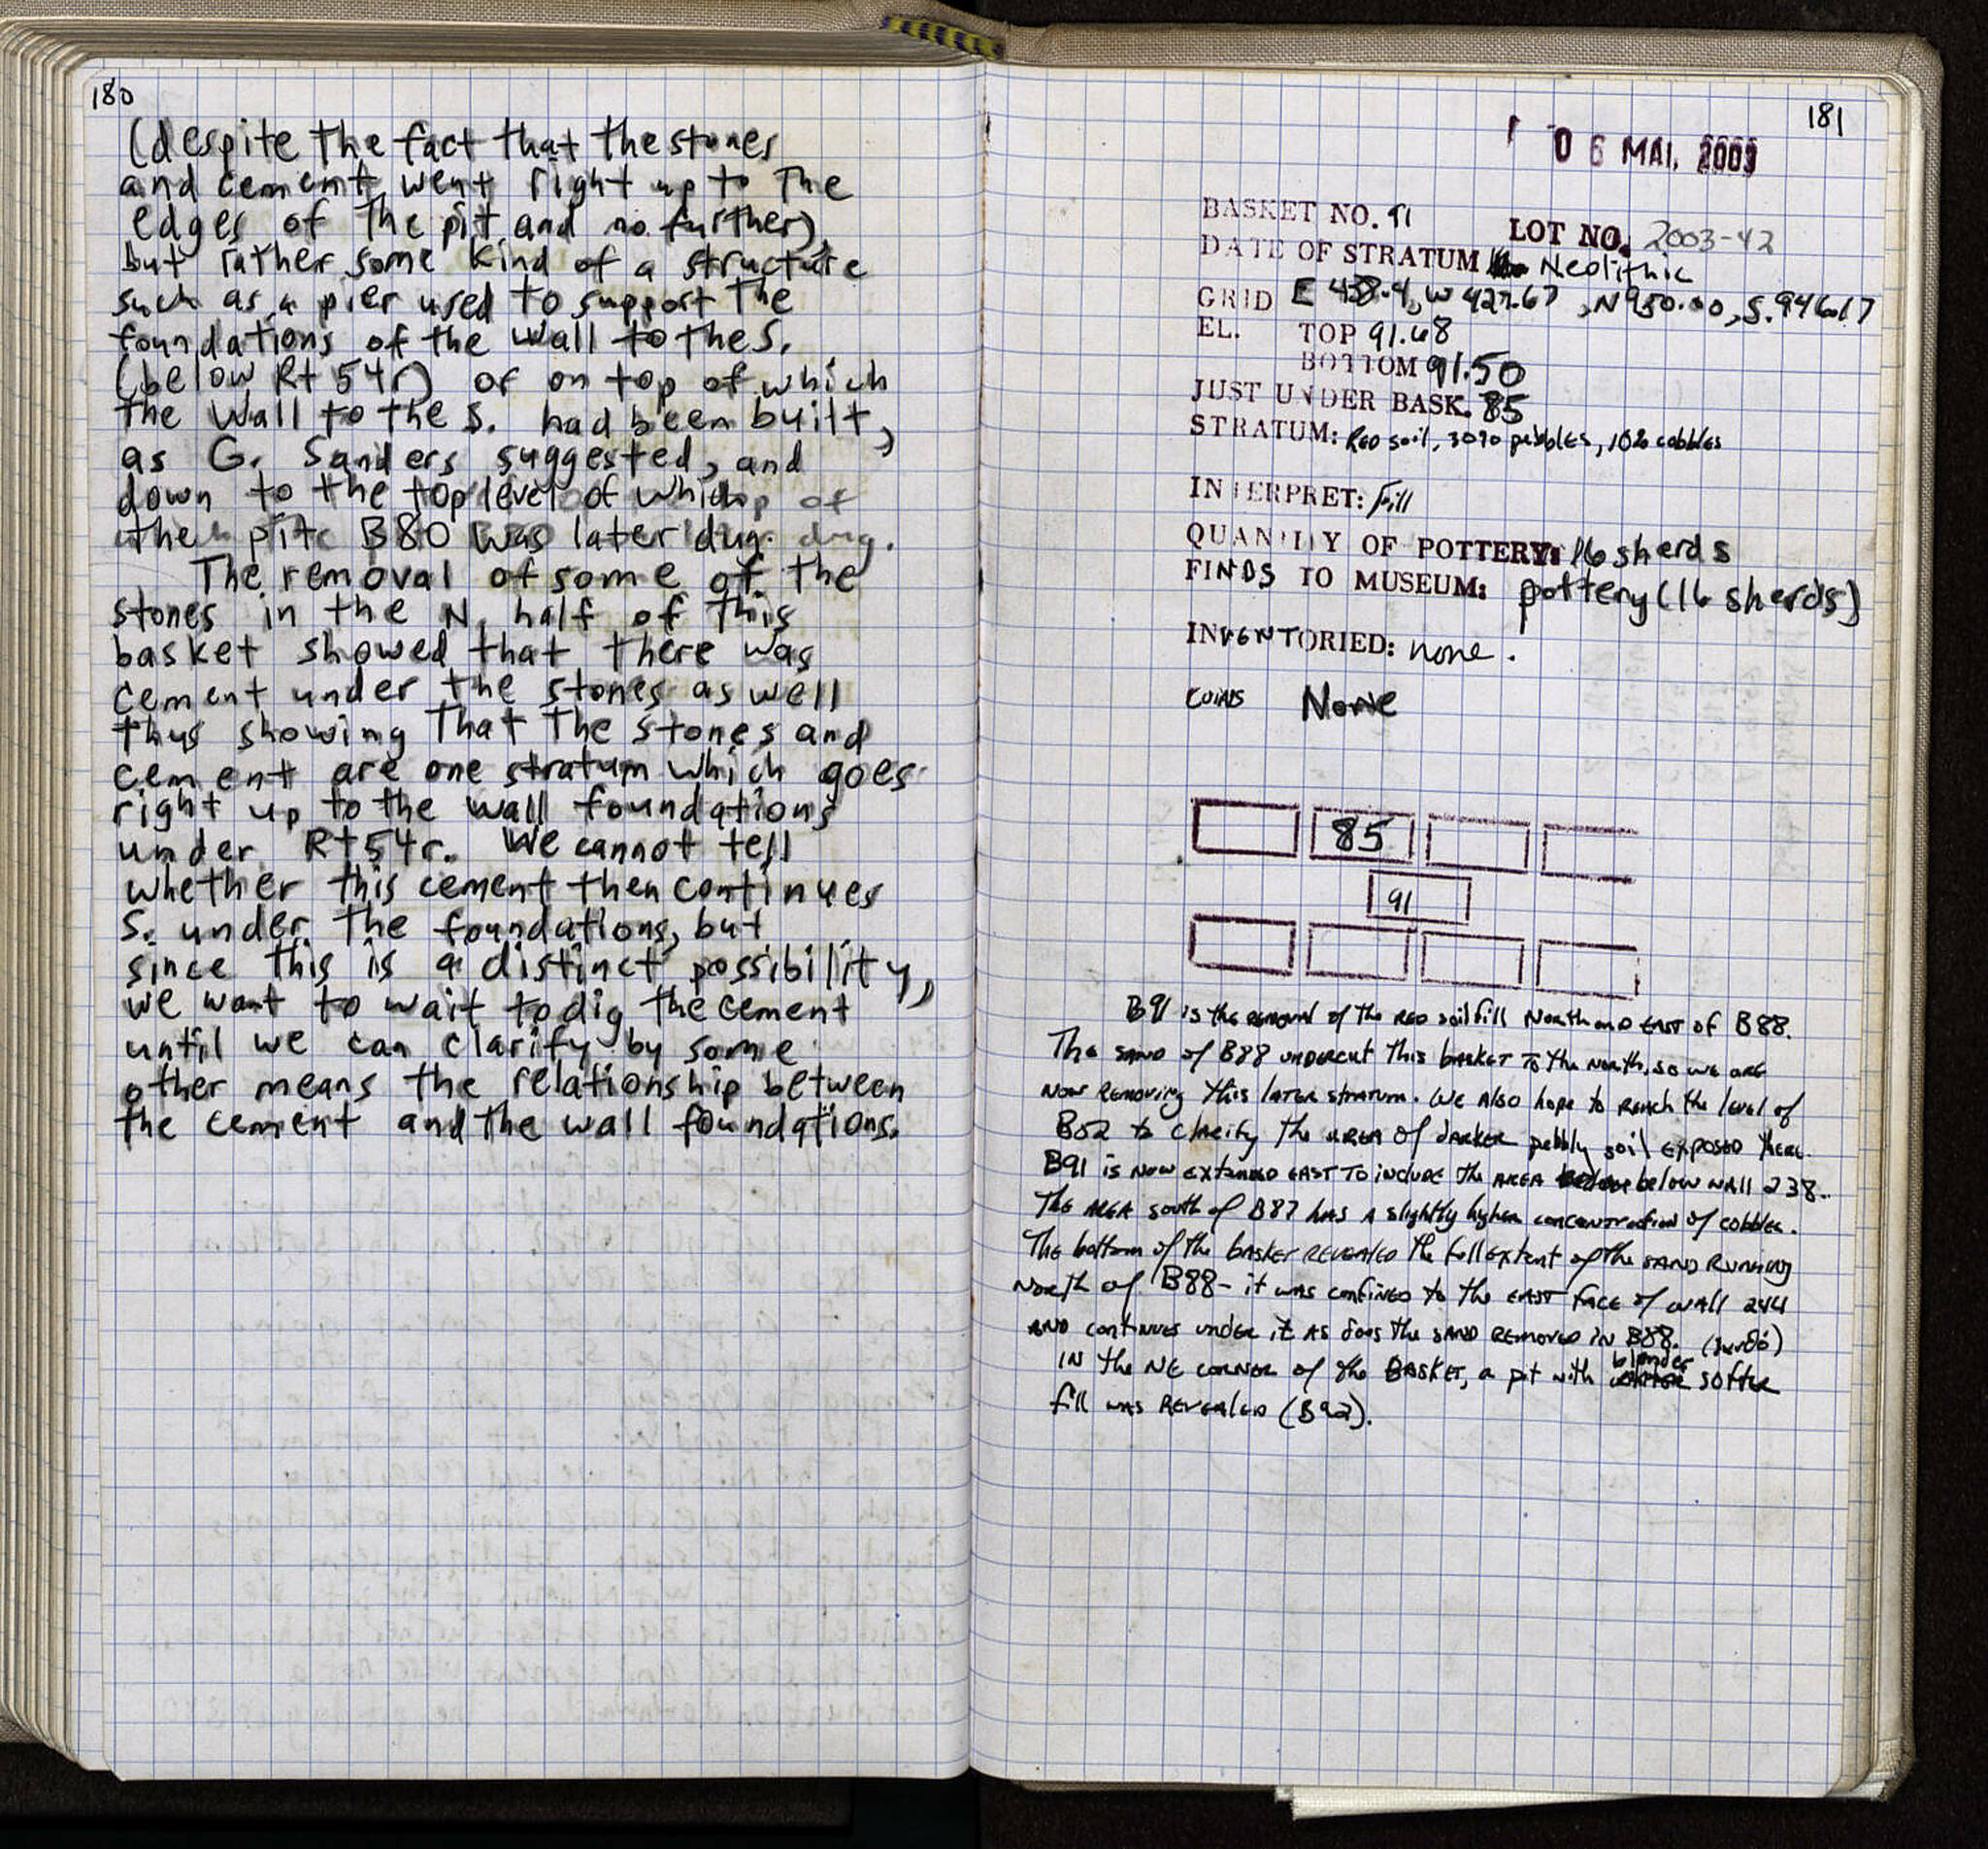 180
(despite the fact that the stones
and cement went right up to the
edges of the pit and no further),
but rather some kind of a structure
such as a pier used to support the
foundations of the wall to the S.
(below Rt 54r) or on top of which
the wall to the S. had been built,
as G. Sanders suggested, and
down to the top level of which
the pit B80 was later dug.
The removal of some of the
stones in the N. half of this
basket showed that there was
cement under the stones as well
thus showing that the stones and
cement are one stratum which goes
right up to the wall foundations
under Rt 54r. We cannot tell
whether this cement then continues
S. under the foundations, but
since this is a distinct possibility,
we want to wait to dig the cement
until we can clarify by some
other means the relationship between
the cement and the wall foundations.
181
06 MAI. 2003
BASKET NO. 91
LOT NO. 2003-42
DATE OF STRATUM Neolithic
GRID E 438.4, W 427.67, N 950.00, S. 946.17
EL. TOP 91.68
BOTTOM 91.50
JUST UNDER BASK. 85
STRATUM: Red soil, 30% pebbles, 10% cobbles
INTERPRET: Fill
QUANTITY OF POTTERY: 16 sherds
FINDS TO MUSEUM: pottery (16 sherds)
INVENTORIED: none.
COINS None
85
91
B91 is the removal of the red soil fill North and East of B88.
The sand of B88 undercut this basket to the North, so we are
now removing this later stratum. We also hope to reach the level of
B52 to clarify the area of darker pebbly soil exposed there.
B91 is now extended east to include the area below wall 238.
The area south of B87 has a slightly higher concentration of cobbles.
The bottom of the basket revealed the full extent of the sand running
North of B88 - it was confined to the east face of wall 244
and continues under it as does the sand removed in B88.
In the NE corner of the basket, a pit with blonder softer
fill was revealed (B92).